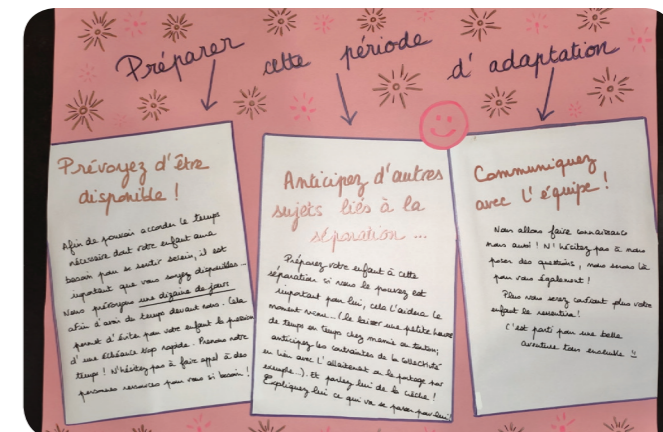 Préparer cette période d'adaptation
Prévoyez d'être
disponible !
Afin de pouvoir accorder le temps
nécessaire dont votre enfant aura
besoin pour se sentir serein, il est
important que vous soyez disponibles...
Nous prévoyons une dizaine de jours
afin d'avoir du temps devant nous. Cela
permet d'éviter pour votre enfant la pression
d'une échéance trop rapide. Prenons notre
temps ! N'hésitez pas à faire appel à des
personnes ressources pour vous si besoin !
Anticipez d'autres
sujets liés à la
séparation ...
Préparez votre enfant à cette
séparation si vous le pouvez est
important pour lui, cela l'aidera le
moment venu... (le laisser une petite heure
de temps en temps chez mamie ou tonton;
anticipez les contraintes de la collectivité
en lien avec l'allaitement ou le portage par
exemple...). Et parlez lui de la crèche !
Expliquez lui ce qui va se passer pour lui!
Communiquez
avec l'équipe !
Nous allons faire connaissance
nous aussi ! N'hésitez pas à nous
poser des questions, nous serons là
pour vous également !
Plus vous serez confiant plus votre
enfant le ressentira !
C'est parti pour une belle
aventure tous ensemble !!